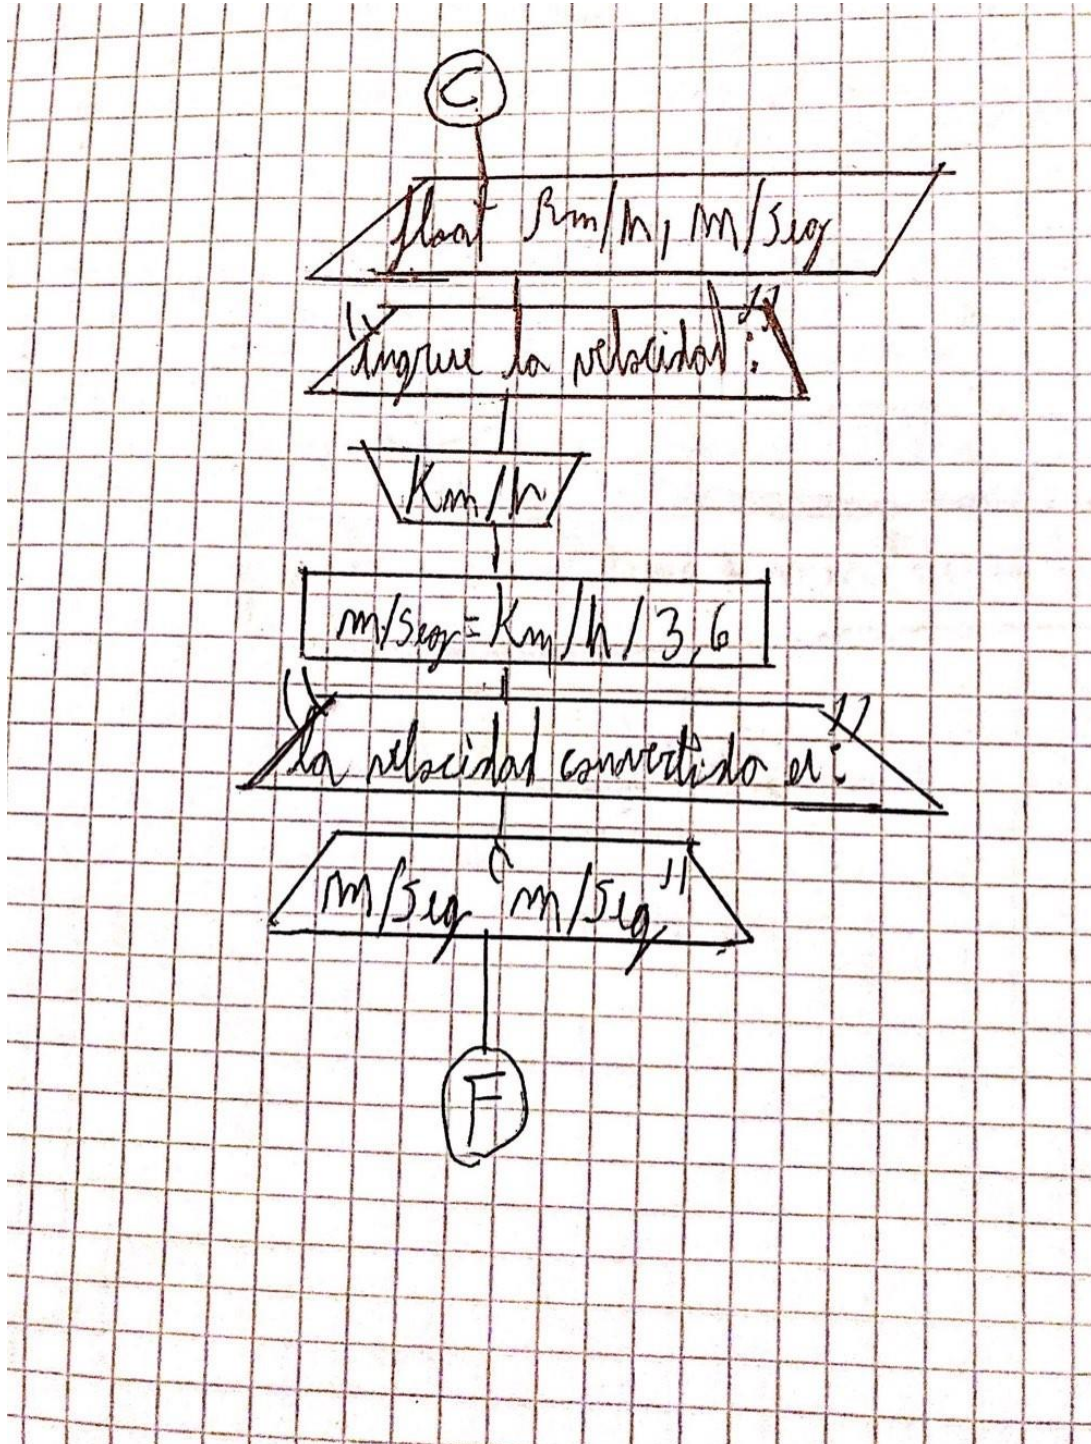 C
float Km/h, m/seg
"Ingrese la velocidad:"
Km/h
m/seg=Km/h/3,6
"la velocidad convertida es:"
m/seg "m/seg"
F